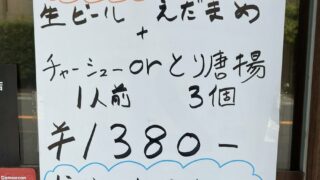 生ビール えだまめ
+
チャーシューorとり唐揚
1人前 3個
¥1380-